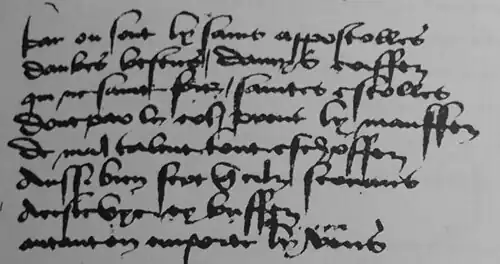 Car ou soit ly sains appostolles
daubes vestus damys coeffez
qui ne saint fors saintes estolles
dont par le col prent ly mauffez
De mal talant tout eschoffez
Aussi bien seruans
De cest vye cy buffez
autant en emporte ly vens